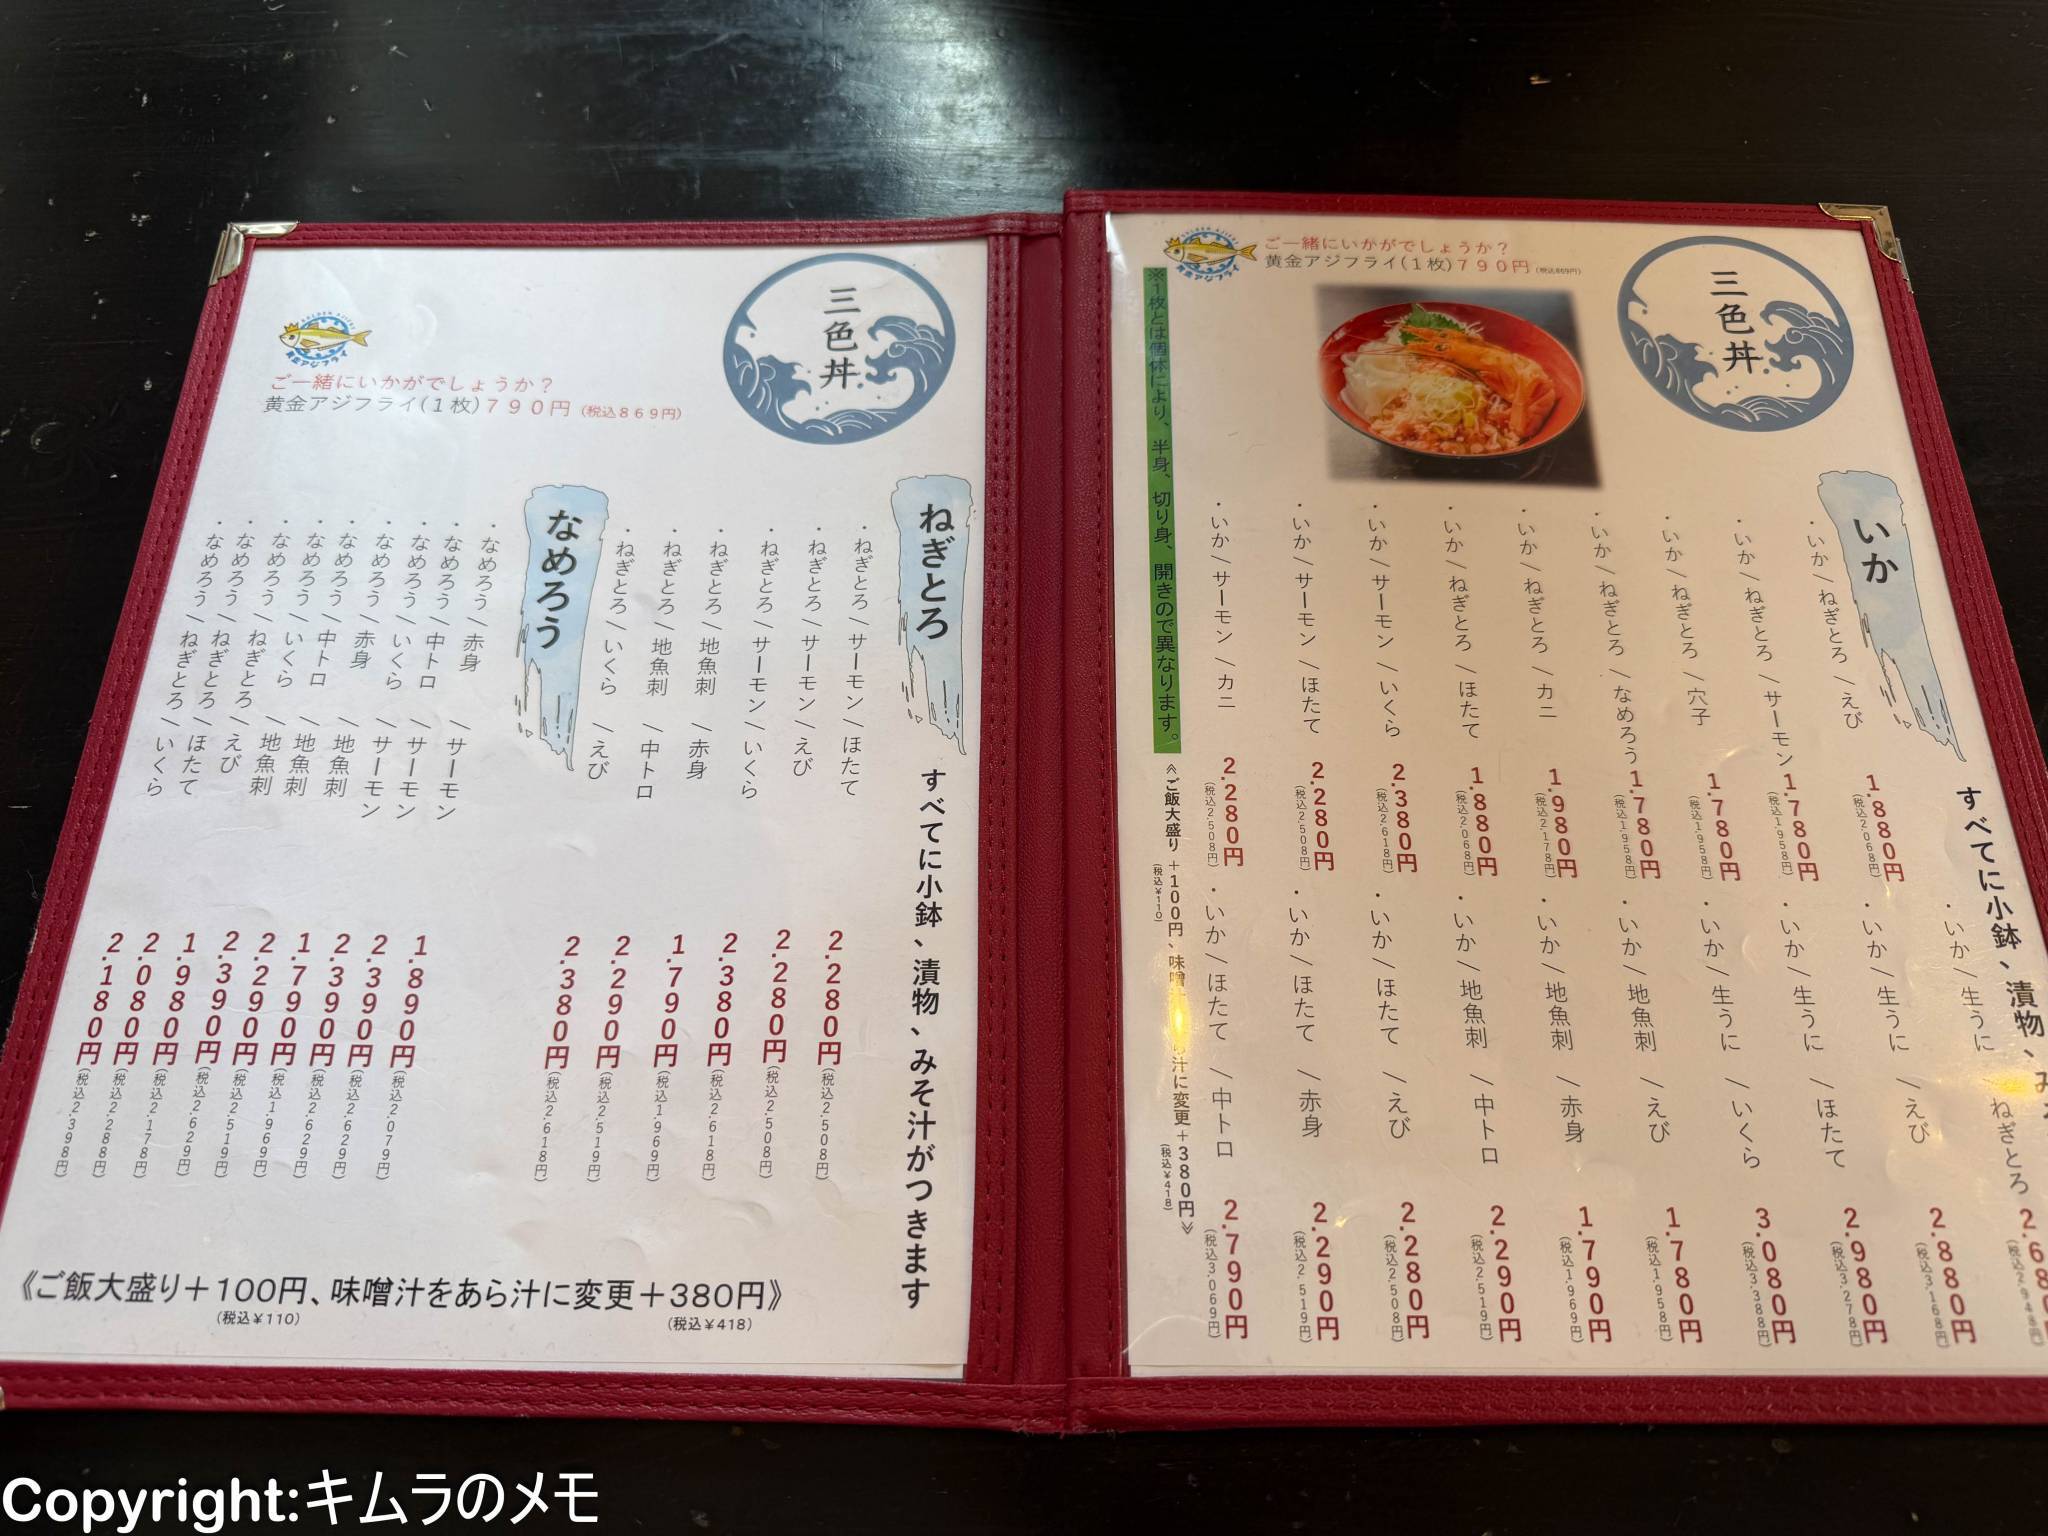 三色丼
GOLDEN AJIFRY
黄金アジフライ
ご一緒にいかがでしょうか?
黄金アジフライ(1枚)790円(税込869円)
いか
すべてに小鉢、漬物、み
・いか/ねぎとろ/えび 1.880円(税込2.068円)
・いか/ねぎとろ/サーモン 1.780円(税込1.958円)
・いか/ねぎとろ/穴子 1.780円(税込1.958円)
・いか/ねぎとろ/なめろう 1.780円(税込1.958円)
・いか/ねぎとろ/カニ 1.980円(税込2.178円)
・いか/ねぎとろ/ほたて 1.880円(税込2.068円)
・いか/サーモン/いくら 2.380円(税込2.618円)
・いか/サーモン/ほたて 2.280円(税込2.508円)
・いか/サーモン/カニ 2.280円(税込2.508円)
・いか/生うに/ねぎとろ 2.680(税込2.948円)
・いか/生うに/えび 2.880円(税込3.168円)
・いか/生うに/ほたて 2.980円(税込3.278円)
・いか/生うに/いくら 3.080円(税込3.388円)
・いか/地魚刺/えび 1.780円(税込1.958円)
・いか/地魚刺/赤身 1.790円(税込1.969円)
・いか/地魚刺/中トロ 2.290円(税込2.519円)
・いか/ほたて/えび 2.280円(税込2.508円)
・いか/ほたて/赤身 2.290円(税込2.519円)
・いか/ほたて/中トロ 2.790円(税込3.069円)
※1枚とは個体により、半身、切り身、開きので異なります。
《ご飯大盛り+100円、味噌汁に変更+380円》
(税込¥110)
(税込¥418)
三色丼
GOLDEN AJIFRY
黄金アジフライ
ご一緒にいかがでしょうか?
黄金アジフライ(1枚)790円(税込869円)
ねぎとろ
すべてに小鉢、漬物、みそ汁がつきます
・ねぎとろ/サーモン/ほたて 2.280円(税込2.508円)
・ねぎとろ/サーモン/えび 2.280円(税込2.508円)
・ねぎとろ/サーモン/いくら 2.380円(税込2.618円)
・ねぎとろ/地魚刺/赤身 1.790円(税込1.969円)
・ねぎとろ/地魚刺/中トロ 2.290円(税込2.519円)
・ねぎとろ/いくら/えび 2.380円(税込2.618円)
なめろう
・なめろう/赤身/サーモン 1.890円(税込2.079円)
・なめろう/中トロ/サーモン 2.390円(税込2.629円)
・なめろう/いくら/サーモン 2.390円(税込2.629円)
・なめろう/赤身/地魚刺 1.790円(税込1.969円)
・なめろう/中トロ/地魚刺 2.290円(税込2.519円)
・なめろう/いくら/地魚刺 2.390円(税込2.629円)
・なめろう/ねぎとろ/えび 1.980円(税込2.178円)
・なめろう/ねぎとろ/ほたて 2.080円(税込2.288円)
・なめろう/ねぎとろ/いくら 2.180円(税込2.398円)
《ご飯大盛り+100円、味噌汁をあら汁に変更+380円》
(税込¥110)
(税込¥418)
Copyright:キムラのメモ